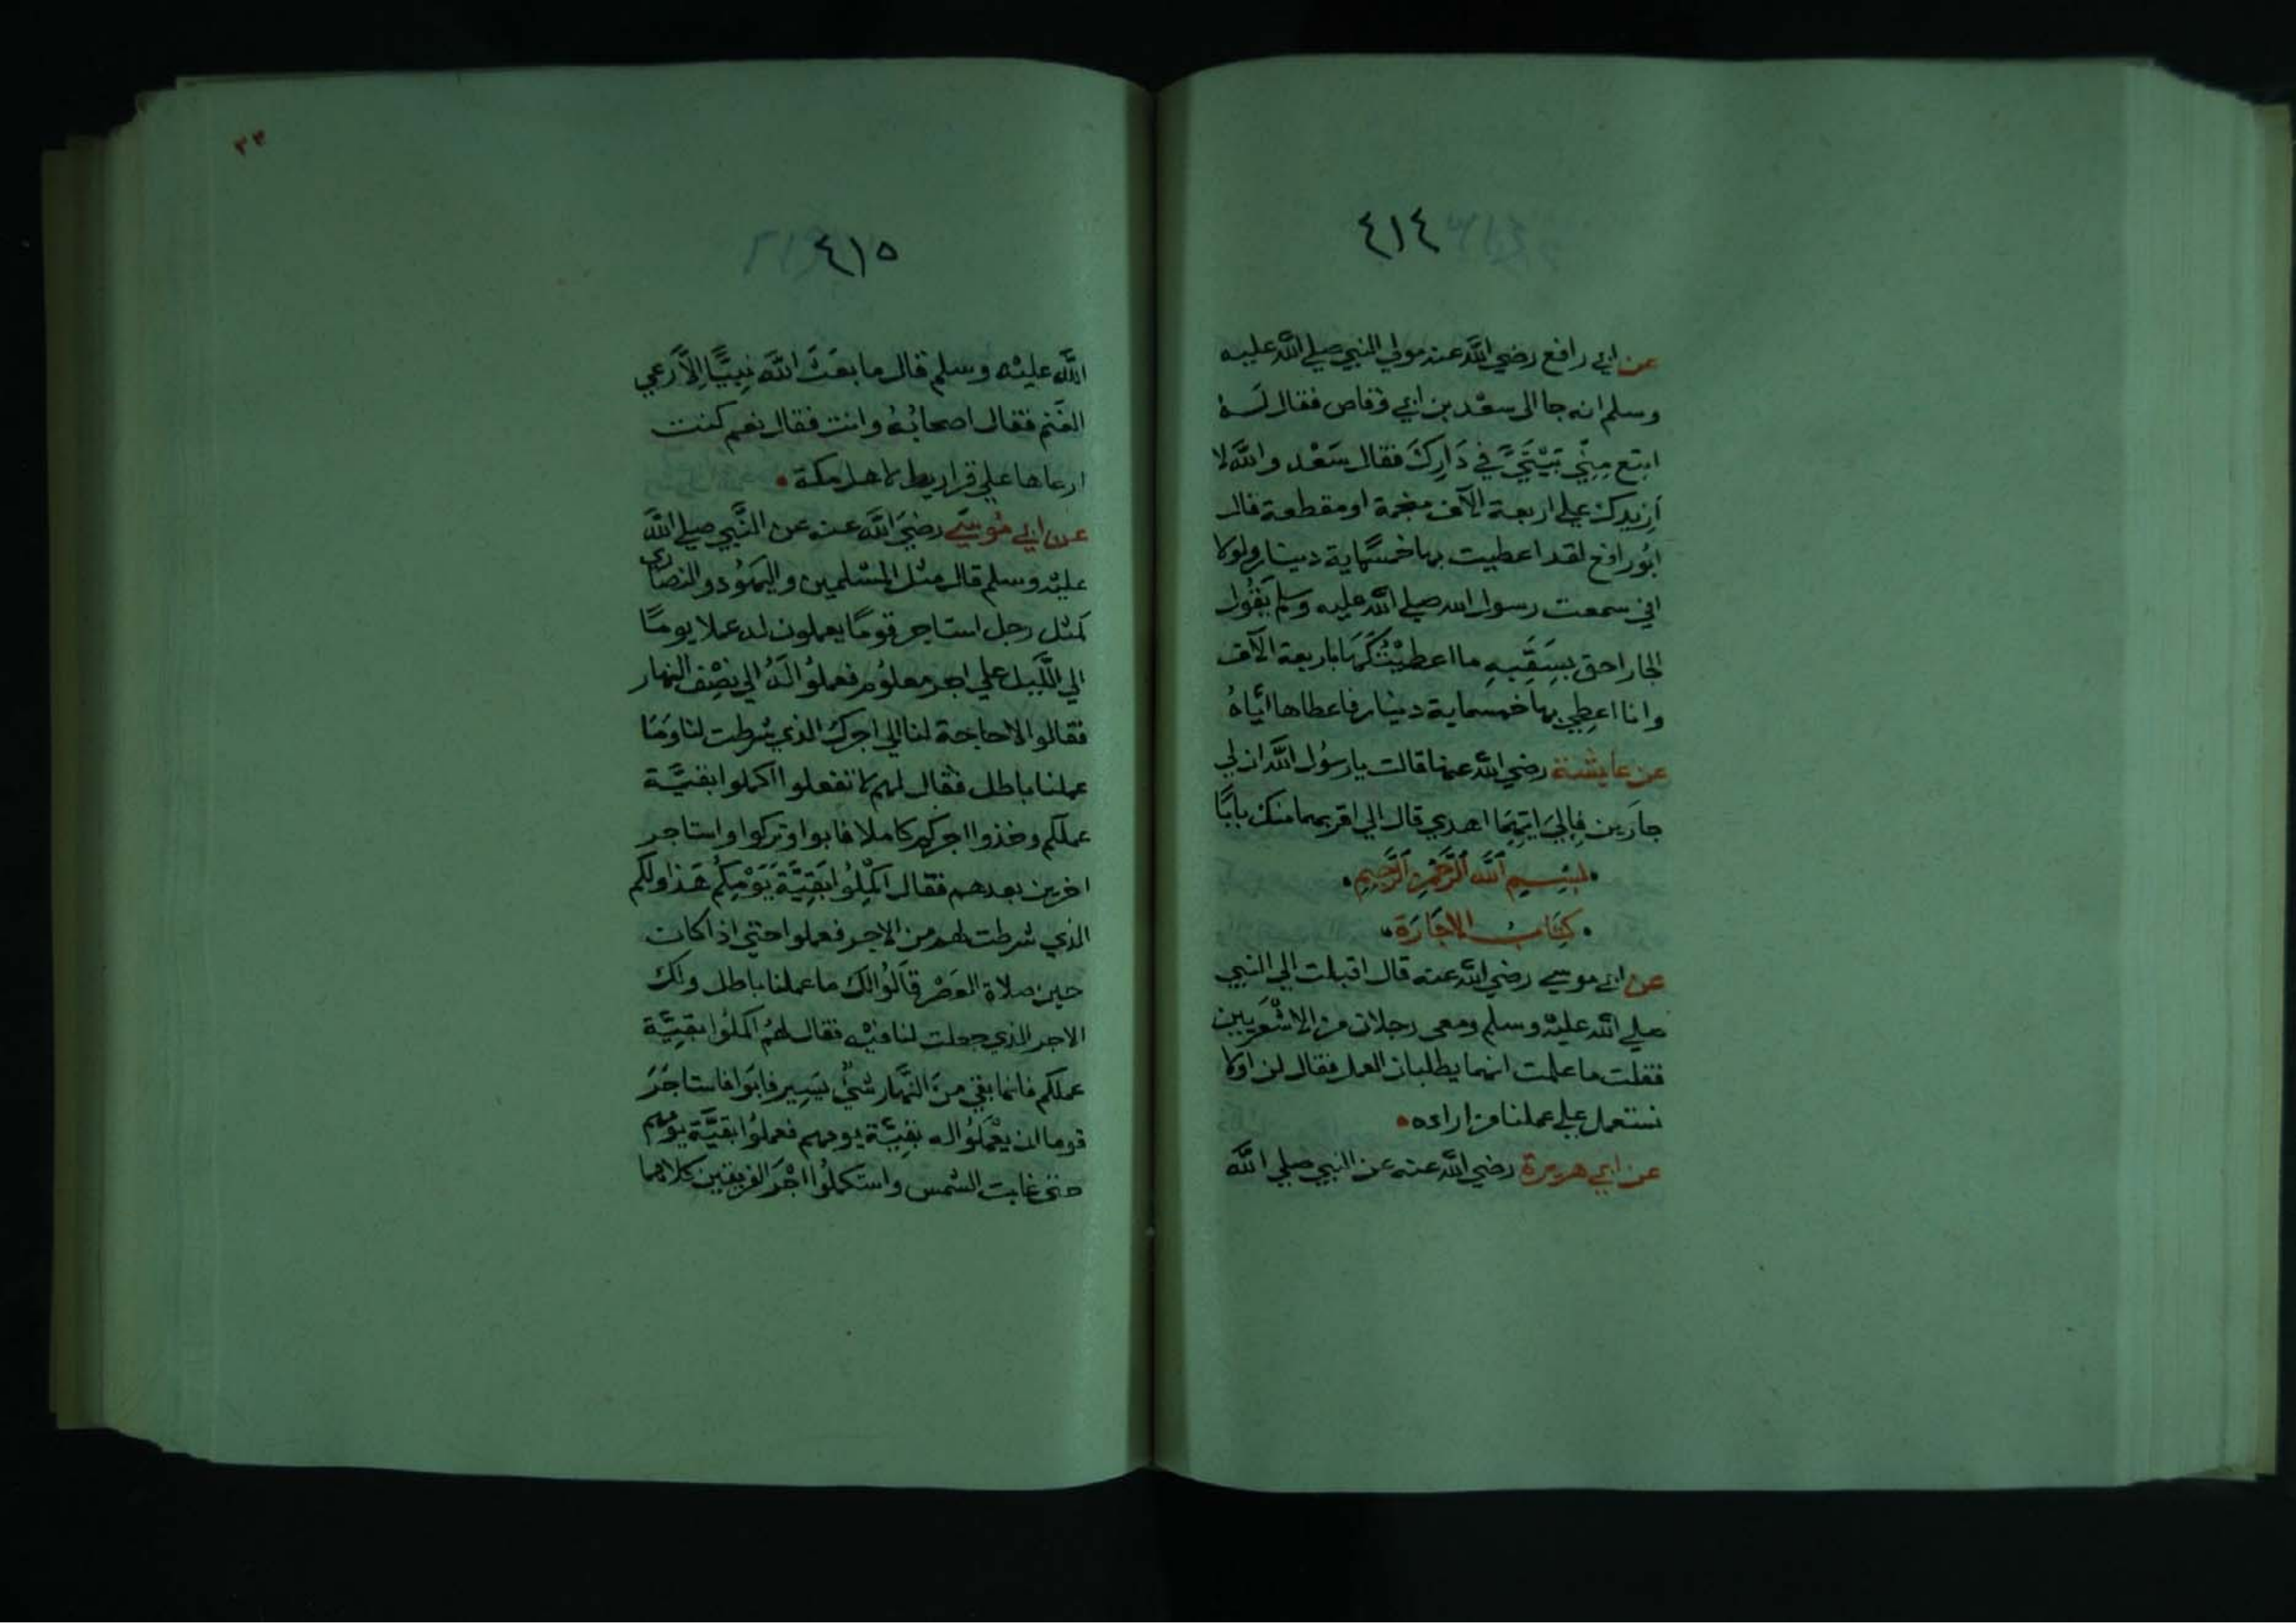 ٤١٤
عن ابي رافع رضي الله عنه مولي النبي صلي الله عليه
وسلم انه جا الى سعد بن ابي وقاص فقال له
ابتع مِنِّي بَيْتَيَّ في دَارِكَ فقال سَعْد والله لا
اَزيدك علي اربعة الآف منجمة او مقطعة قال
ابُو رافع لقد اعطيت بها خمسماية دينار ولولا
اني سمعت رسول الله صلي الله عليه وسلم يَقُول
الجار احق بِسَقَبِهِ ما اعطيْتُكَهَا باربعة الآف
وانا اعطِي بها خمسماية دينار فاعطاها ايَّاهُ
عن عايشة رضي الله عنها قالت يا رسُول الله ان لي
جارَين فإِلي ايّهِمَا اهدي قال الي اقربهما منك بابًا
بِسْمِ اللَّهِ الرَّحْمَنِ الرَّحِيمِ
كِتَابُ الاجَارَة
عن ابي موسي رضي الله عنه قال اقبلت الي النبي
صلي الله عليْه وسلم ومعي رجلان من الاشْعَريين
فقلت ما علمت انهما يطلبان العمل فقال لن اولا
نستعمل علي عملنا من اراده
عن ابي هريرة رضي الله عنه عن النبي صلي الله
٣٣
٤١٥
الله عليْه وسلم قال ما بعَثَ الله نبيًّا إلاَّ رَعي
الغَنم فقال اصحابُهُ وانت فقال نعم كنت
ارعاها علي قراريط لاهل مكة
عن ابي مُوسَي رضيَ الله عنه عن النَّبي صلي اللهَ
عليْه وسلم قال مثل المسْلمين واليهُود والنصارى
كمثل رجل استاجر قومًا يعملون له عملا يومًا
الي اللَّيل علي اجر معلُوم فعملُوا لَهُ الي نصْف النهار
فقالوا لا حاجة لنا الي اجرك الذي شرطت لنا ومَا
عملنا باطل فقال لهم لا تفعلوا اكملوا بقيَّة
عملكم وخذوا اجركم كاملا فابوا وتركوا واستاجر
اخرين بعدهم فقال اكْمِلُوا بَقِيَّة يَوْمِكُم هَذا ولكم
الذي شرطت لهم من الاجر فعملوا حتي اذا كان
حين صلاة العَصْر قَالُوا لك ما عملنا باطل ولك
الاجر الذي جعلت لنا فيْه فقال لهُم اكملُوا بقيَّة
عملكم فانما بقي منَ النَّهار شيْ يَسِير فابَوا فاستاجَرَ
قوما ان يعْمَلُوا له بقيَّة يومهم فعملُوا بقيَّة يَومهم
حتي غابت الشمس واستكملُوا اجْرَ الفريقين كلاهما